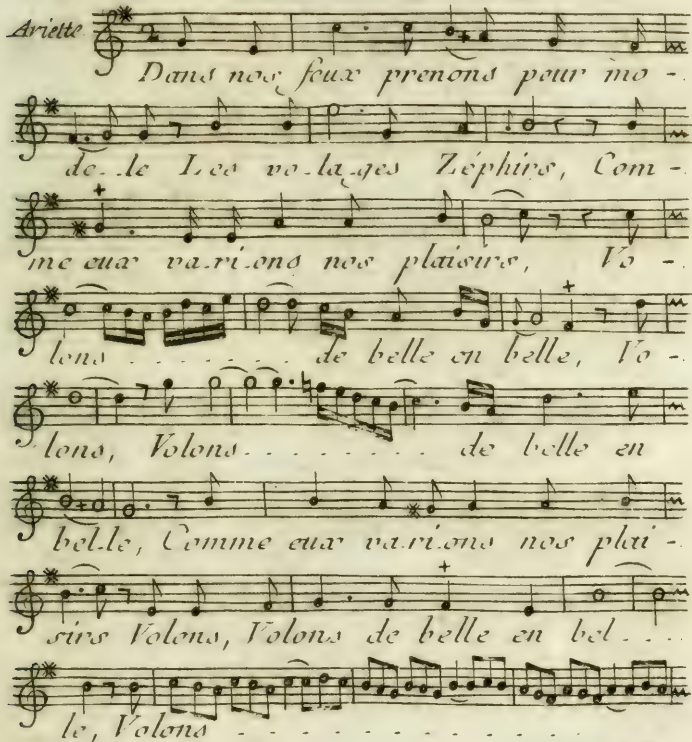 Ariette
Dans nos feux prenons pour mo-
de-le Les vo-la-ges Zéphirs, Com-
me eux va-ri-ons nos plaisirs, Vo-
lons . . . . . . . . . de belle en belle, Vo-
lons, Volons . . . . . . . . . de belle en
bel-le, Comme eux va-ri-ons nos plai-
sirs Volons, Volons de belle en bel . . . .
le, Volons . . . . . . . . . . . . .